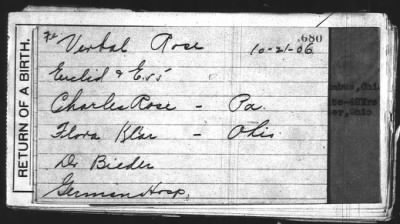 RETURN OF A BIRTH.
Verbal Rose
.680
10-21-06
Euclid &
Charles Rose - Pa.
Flora - Ohio
Dr Bieder
German Hosp.